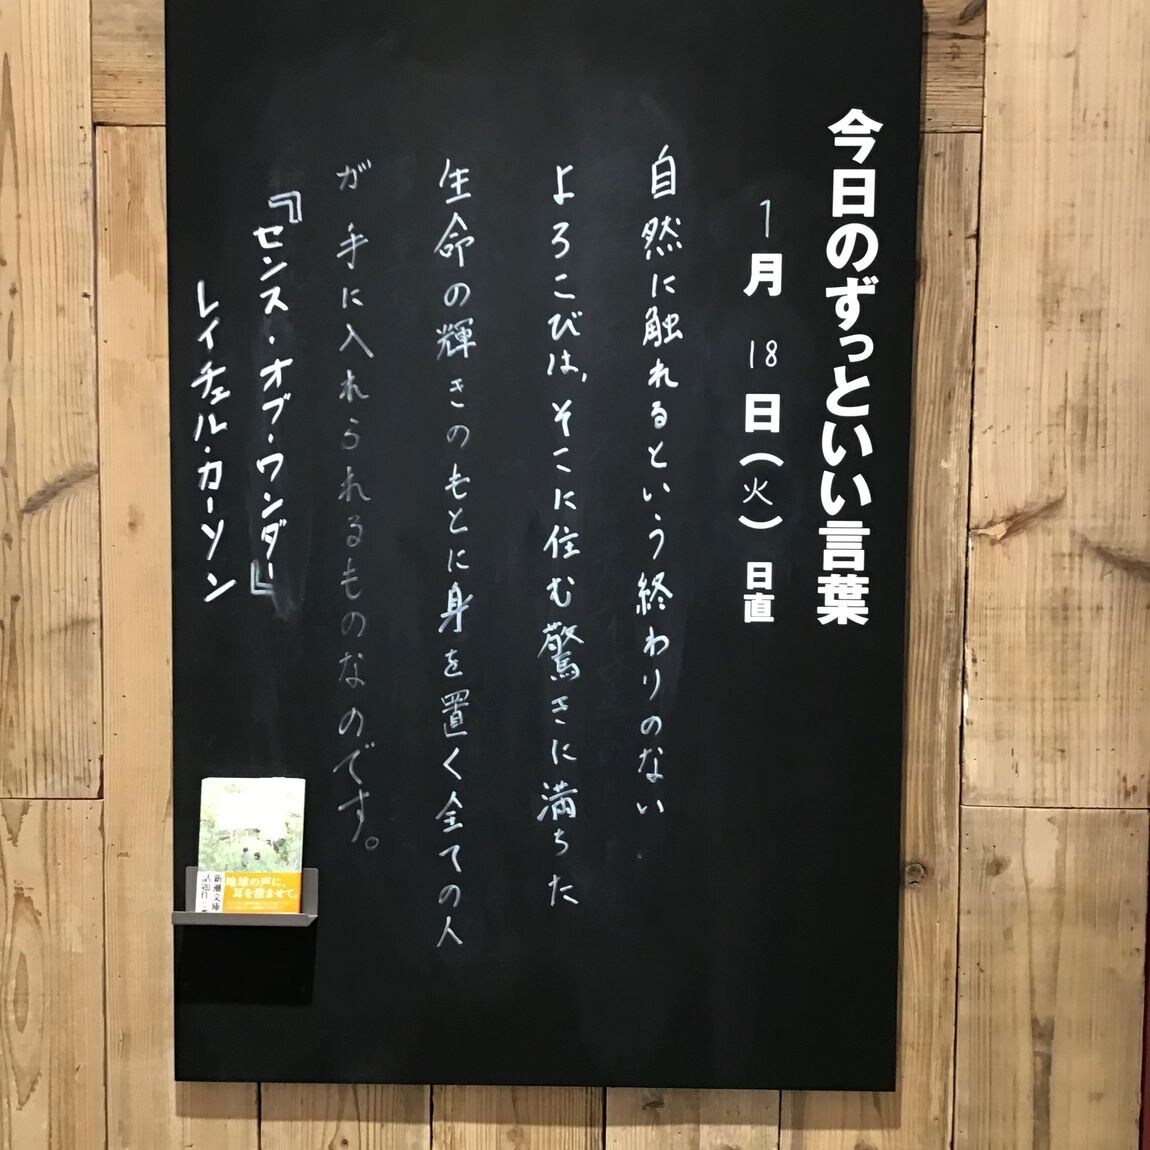 今日のずっといい言葉
1月18日(火)日直
自然に触れるという終わりのない
よろこびは、そこに住む驚きに満ちた
生命の輝きのもとに身を置く全ての人
が手に入れられるものなのです。
『センス・オブ・ワンダー』
レイチェル・カーソン
地球の声に、
耳を澄ませて。
新潮文庫